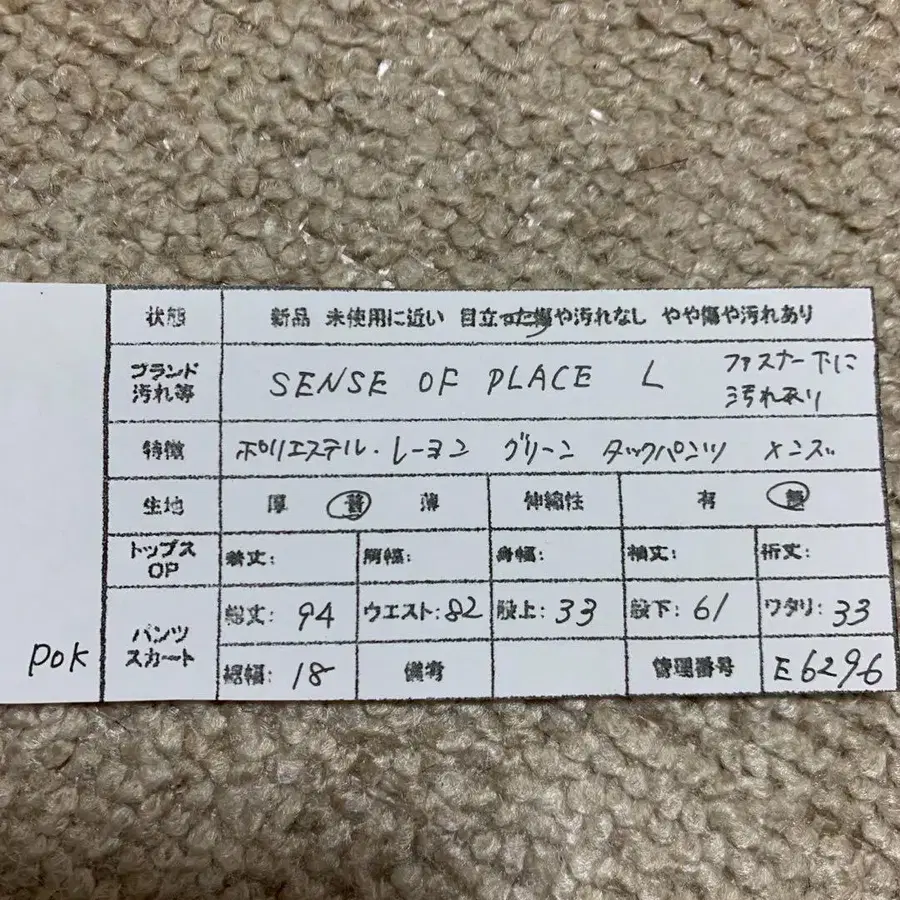 状態 新品 未使用に近い 目立った傷や汚れなし やや傷や汚れあり
ブランド 汚れ等 SENSE OF PLACE L ファスナー下に 汚れあり
特徴 ポリエステル・レーヨン グリーン タックパンツ メンズ
生地 厚 普 薄 伸縮性 有 無
トップス OP 着丈: 肩幅: 身幅: 袖丈: 裄丈:
パンツ スカート 総丈: 94 ウエスト: 82 股上: 33 股下: 61 ワタリ: 33
裾幅: 18 備考 管理番号 E6296
POK